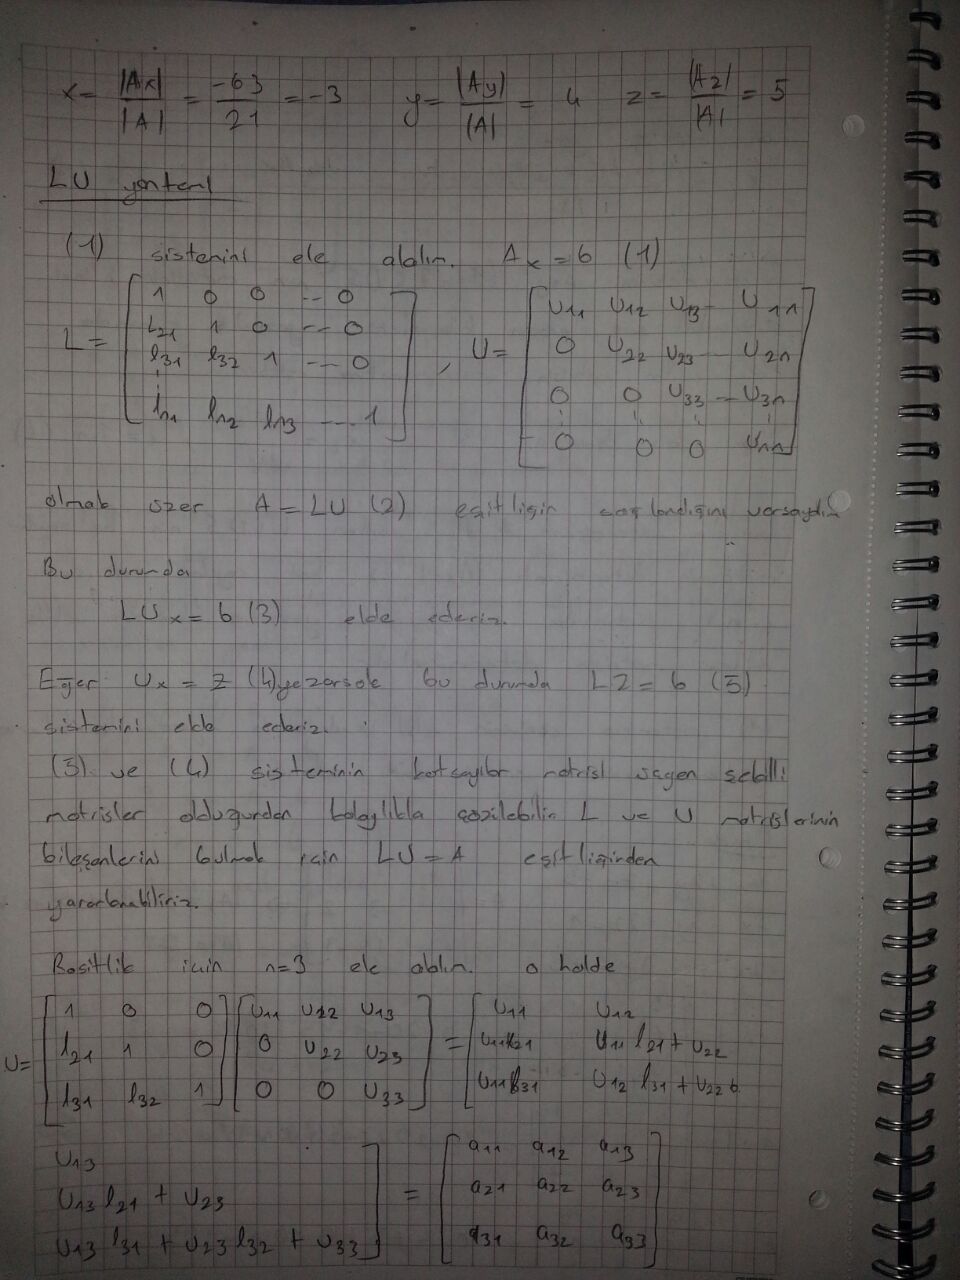 x = |Ax| / |A| = -63 / 21 = -3    y = |Ay| / |A| = 4    z = |Az| / |A| = 5
LU yöntemi
(1) sistemini ele alalım. Ax = b (1)
L = [ 1 0 0 --- 0 ; L21 1 0 --- 0 ; l31 l32 1 --- 0 ; ⋮ ; ln1 ln2 ln3 ---- 1 ] , U = [ U11 U12 U13 -- U1n ; 0 U22 U23 -- U2n ; 0 0 U33 -- U3n ; ⋮ ; 0 0 0 Unn ]
olmak üzer A = LU (2) eşitliğin sağlandığını varsaydım
Bu durumda
LUx = b (3) elde ederiz.
Eğer Ux = z (4) yazarsak bu durumda LZ = b (5)
sistemini elde ederiz.
(3) ve (4) sisteminin katsayılar matrisi üçgen şekilli
matrisler olduğundan kolaylıkla çözülebilir L ve U matrislerinin
bileşenlerini bulmak için LU = A eşitliğinden
yararlanabiliriz.
Basitlik için n=3 ele alalım. o halde
U = [ 1 0 0 ; l21 1 0 ; l31 l32 1 ] [ U11 U22 U13 ; 0 U22 U23 ; 0 0 U33 ] = [ U11 U12 ; U11 l21 U11 l21 + U22 ; U11 l31 U12 l31 + U22
U13 ; U13 l21 + U23 ; U13 l31 + U23 l32 + U33 ] = [ a11 a12 a13 ; a21 a22 a23 ; a31 a32 a33 ]